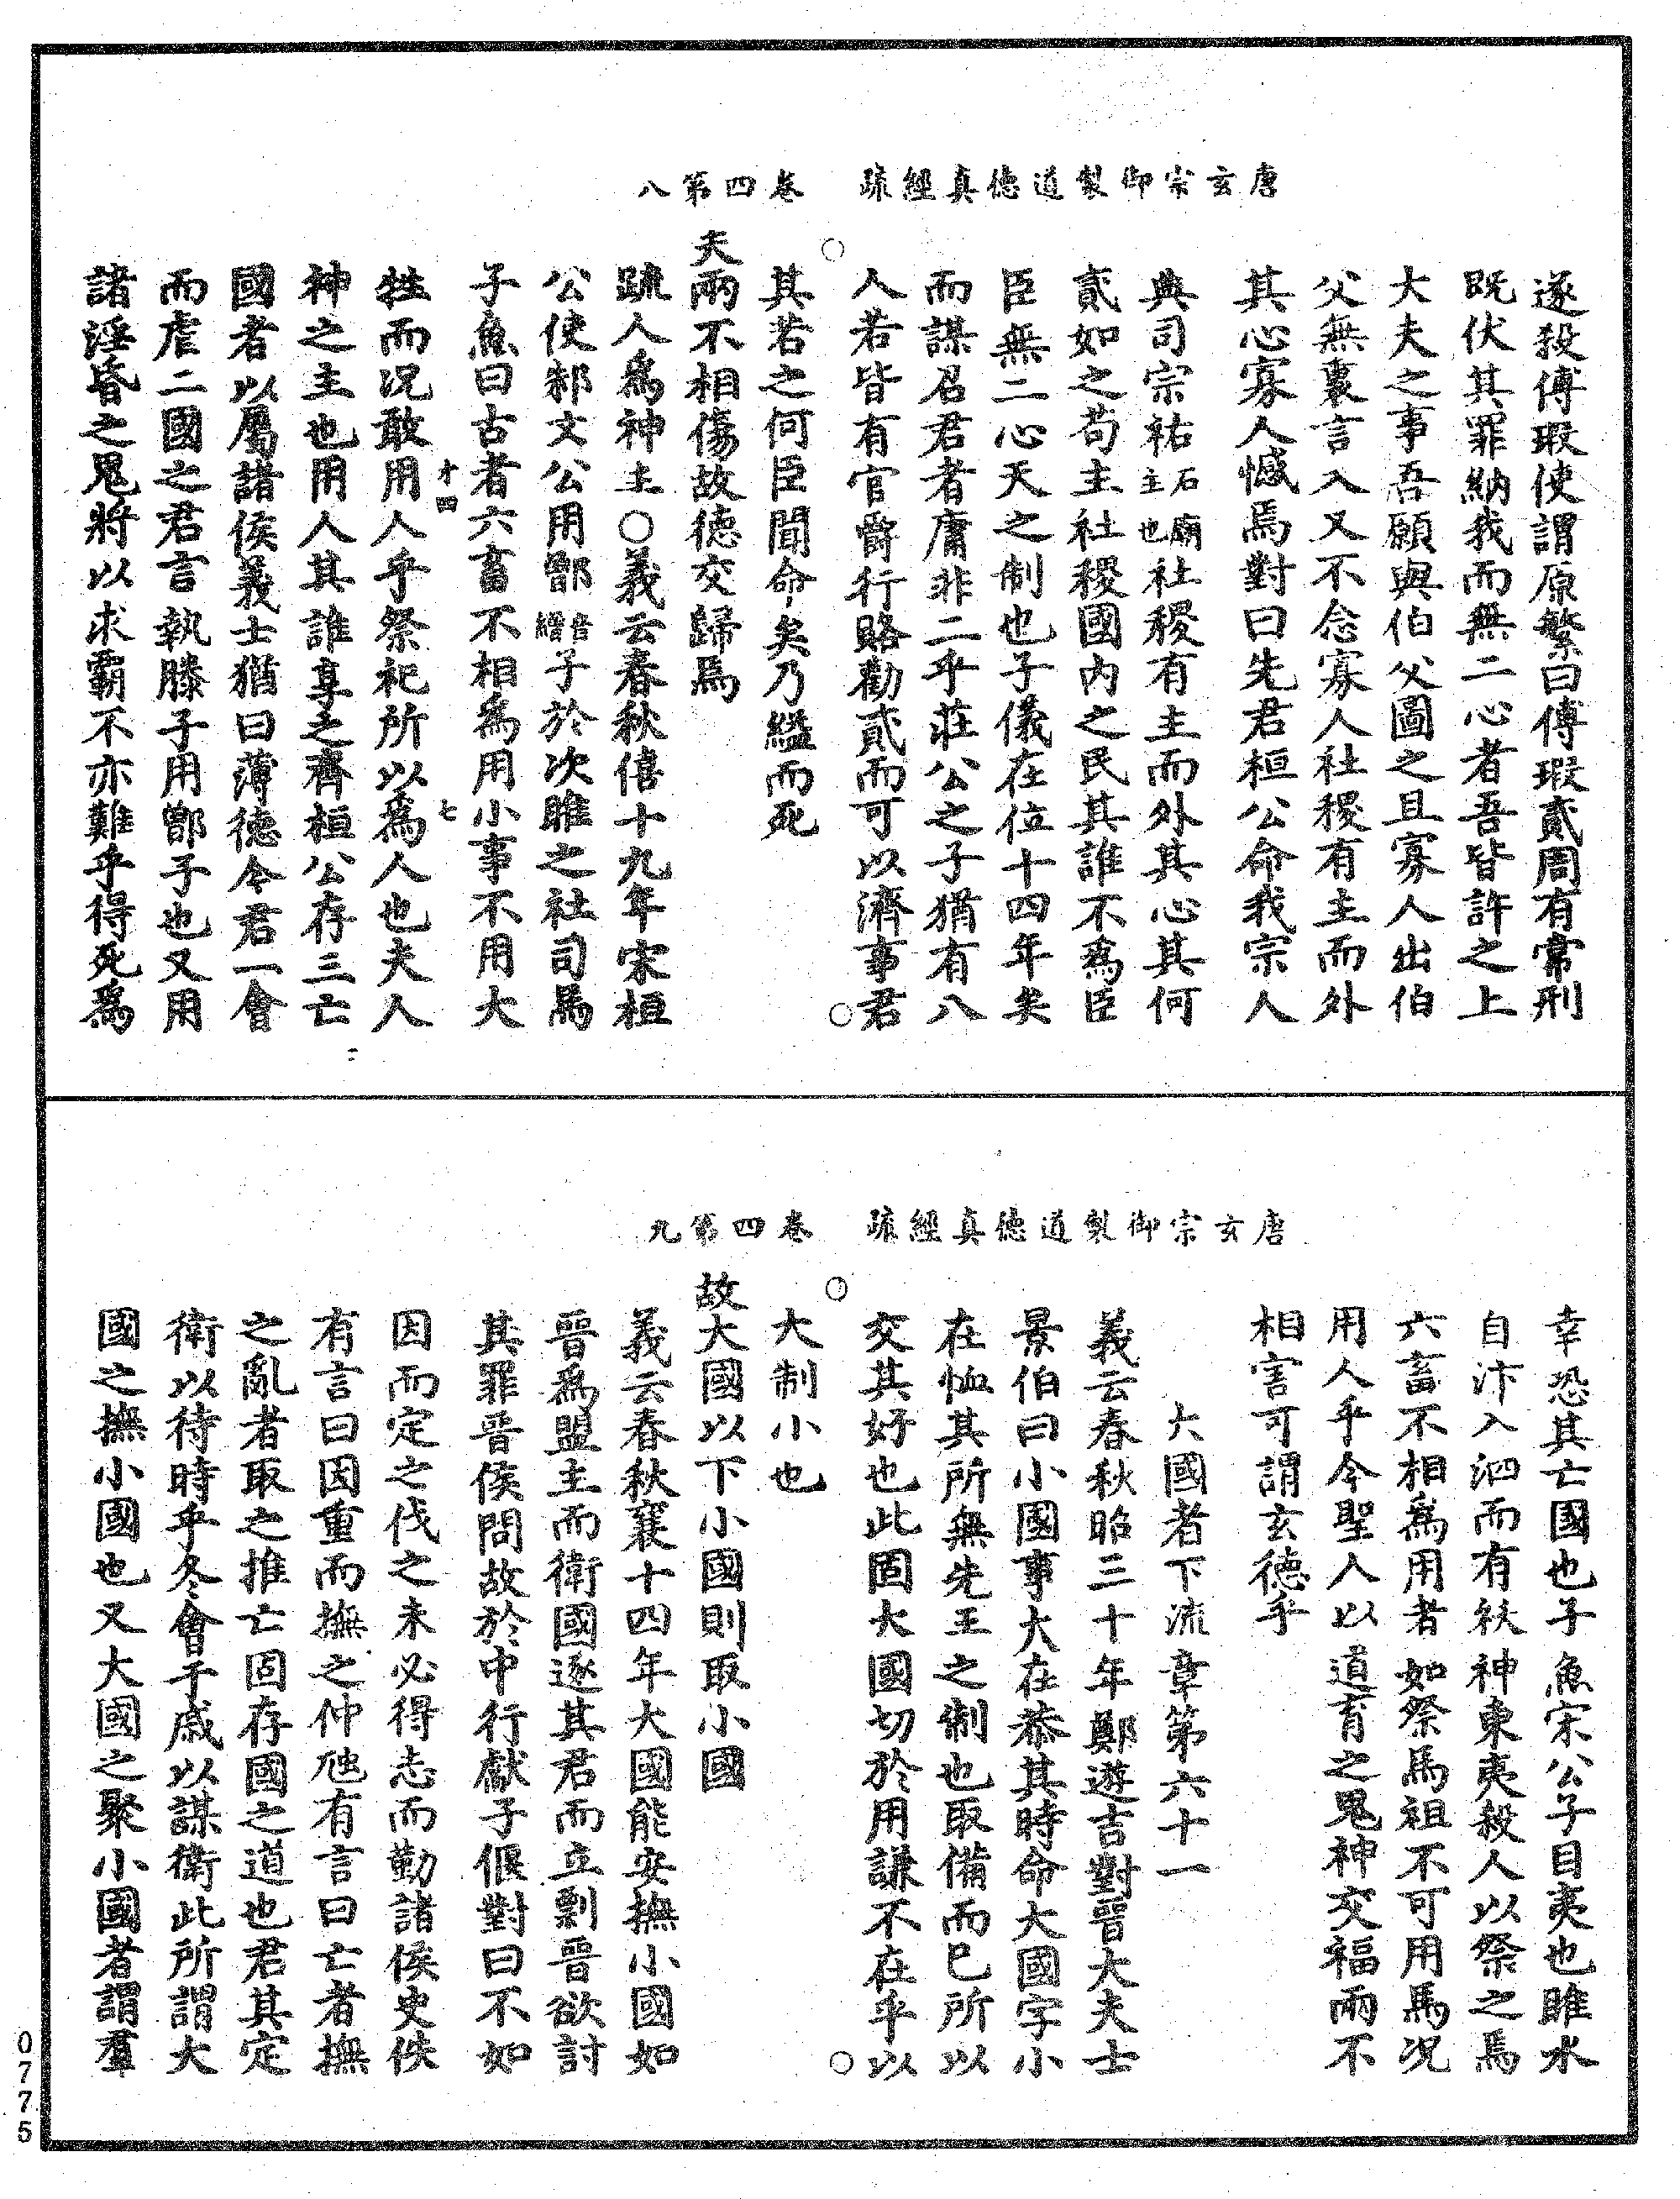 唐玄宗御製道德真經疏　卷四第八
遂殺傅瑕使謂原繁曰傅瑕貳周有常刑
既伏其罪納我而無二心者吾皆許之上
大夫之事吾願與伯父圖之且寡人出伯
父無裏言入又不念寡人社稷有主而外
其心寡人憾焉對曰先君桓公命我宗人
典司宗祐石廟主也社稷有主而外其心其何
貳如之苟主社稷國內之民其誰不為臣
臣無二心天之制也子儀在位十四年矣
而謀召君者庸非二乎莊公之子猶有八
人若皆有官爵行賂勸貳而可以濟事君
其若之何臣聞命矣乃縊而死
夫兩不相傷故德交歸焉
疏人為神主○義云春秋僖十九年宋桓
公使邾文公用鄫音繒子於次睢之社司馬
子魚曰古者六畜不相為用小事不用大
牲而况敢用人乎祭祀所以為人也夫人
才四　七
神之主也用人其誰享之齊桓公存三亡
國者以屬諸侯義士猶曰薄德今君一會
而虐二國之君言執滕子用鄫子也又用
諸淫昏之鬼將以求霸不亦難乎得死為
二
唐玄宗御製道德真經疏　卷四第九
幸恐其亡國也子魚宋公子目夷也睢水
自汴入泗而有妖神東夷殺人以祭之焉
六畜不相為用者如祭馬祖不可用馬况
用人乎今聖人以道育之鬼神交福兩不
相害可謂玄德乎
大國者下流章第六十一
義云春秋昭三十年鄭遊吉對晉大夫士
景伯曰小國事大在恭其時命大國字小
在恤其所無先王之制也取備而已所以
交其好也此固大國切於用謙不在乎以
大制小也
故大國以下小國則取小國
義云春秋襄十四年大國能安撫小國如
晉為盟主而衛國逐其君而立剽晉欲討
其罪晉侯問故於中行獻子偃對曰不如
因而定之伐之未必得志而勤諸侯史佚
有言曰因重而撫之仲虺有言曰亡者撫
之亂者取之推亡固存國之道也君其定
衛以待時乎冬會于戚以謀衛此所謂大
國之撫小國也又大國之聚小國者謂羣
0775